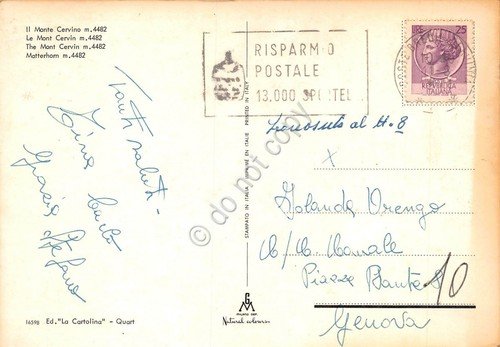 Il Monte Cervino m. 4482
Le Mont Cervin m. 4482
The Mont Cervin m. 4482
Matterhorn m. 4482
Tanti saluti -
Tina Carlo
Grazia Stefano
16598 Ed. "La Cartolina" - Quart
STAMPATO IN ITALIA IMPRIMÉ EN ITALIE PRINTED IN ITALY
RISPARMIO
POSTALE
13.000 SPORTELLI
25
Iolanda Orengo
Piazza Dante 10
Genova
GM
MILANO DEP.
Natural colours
do not copy